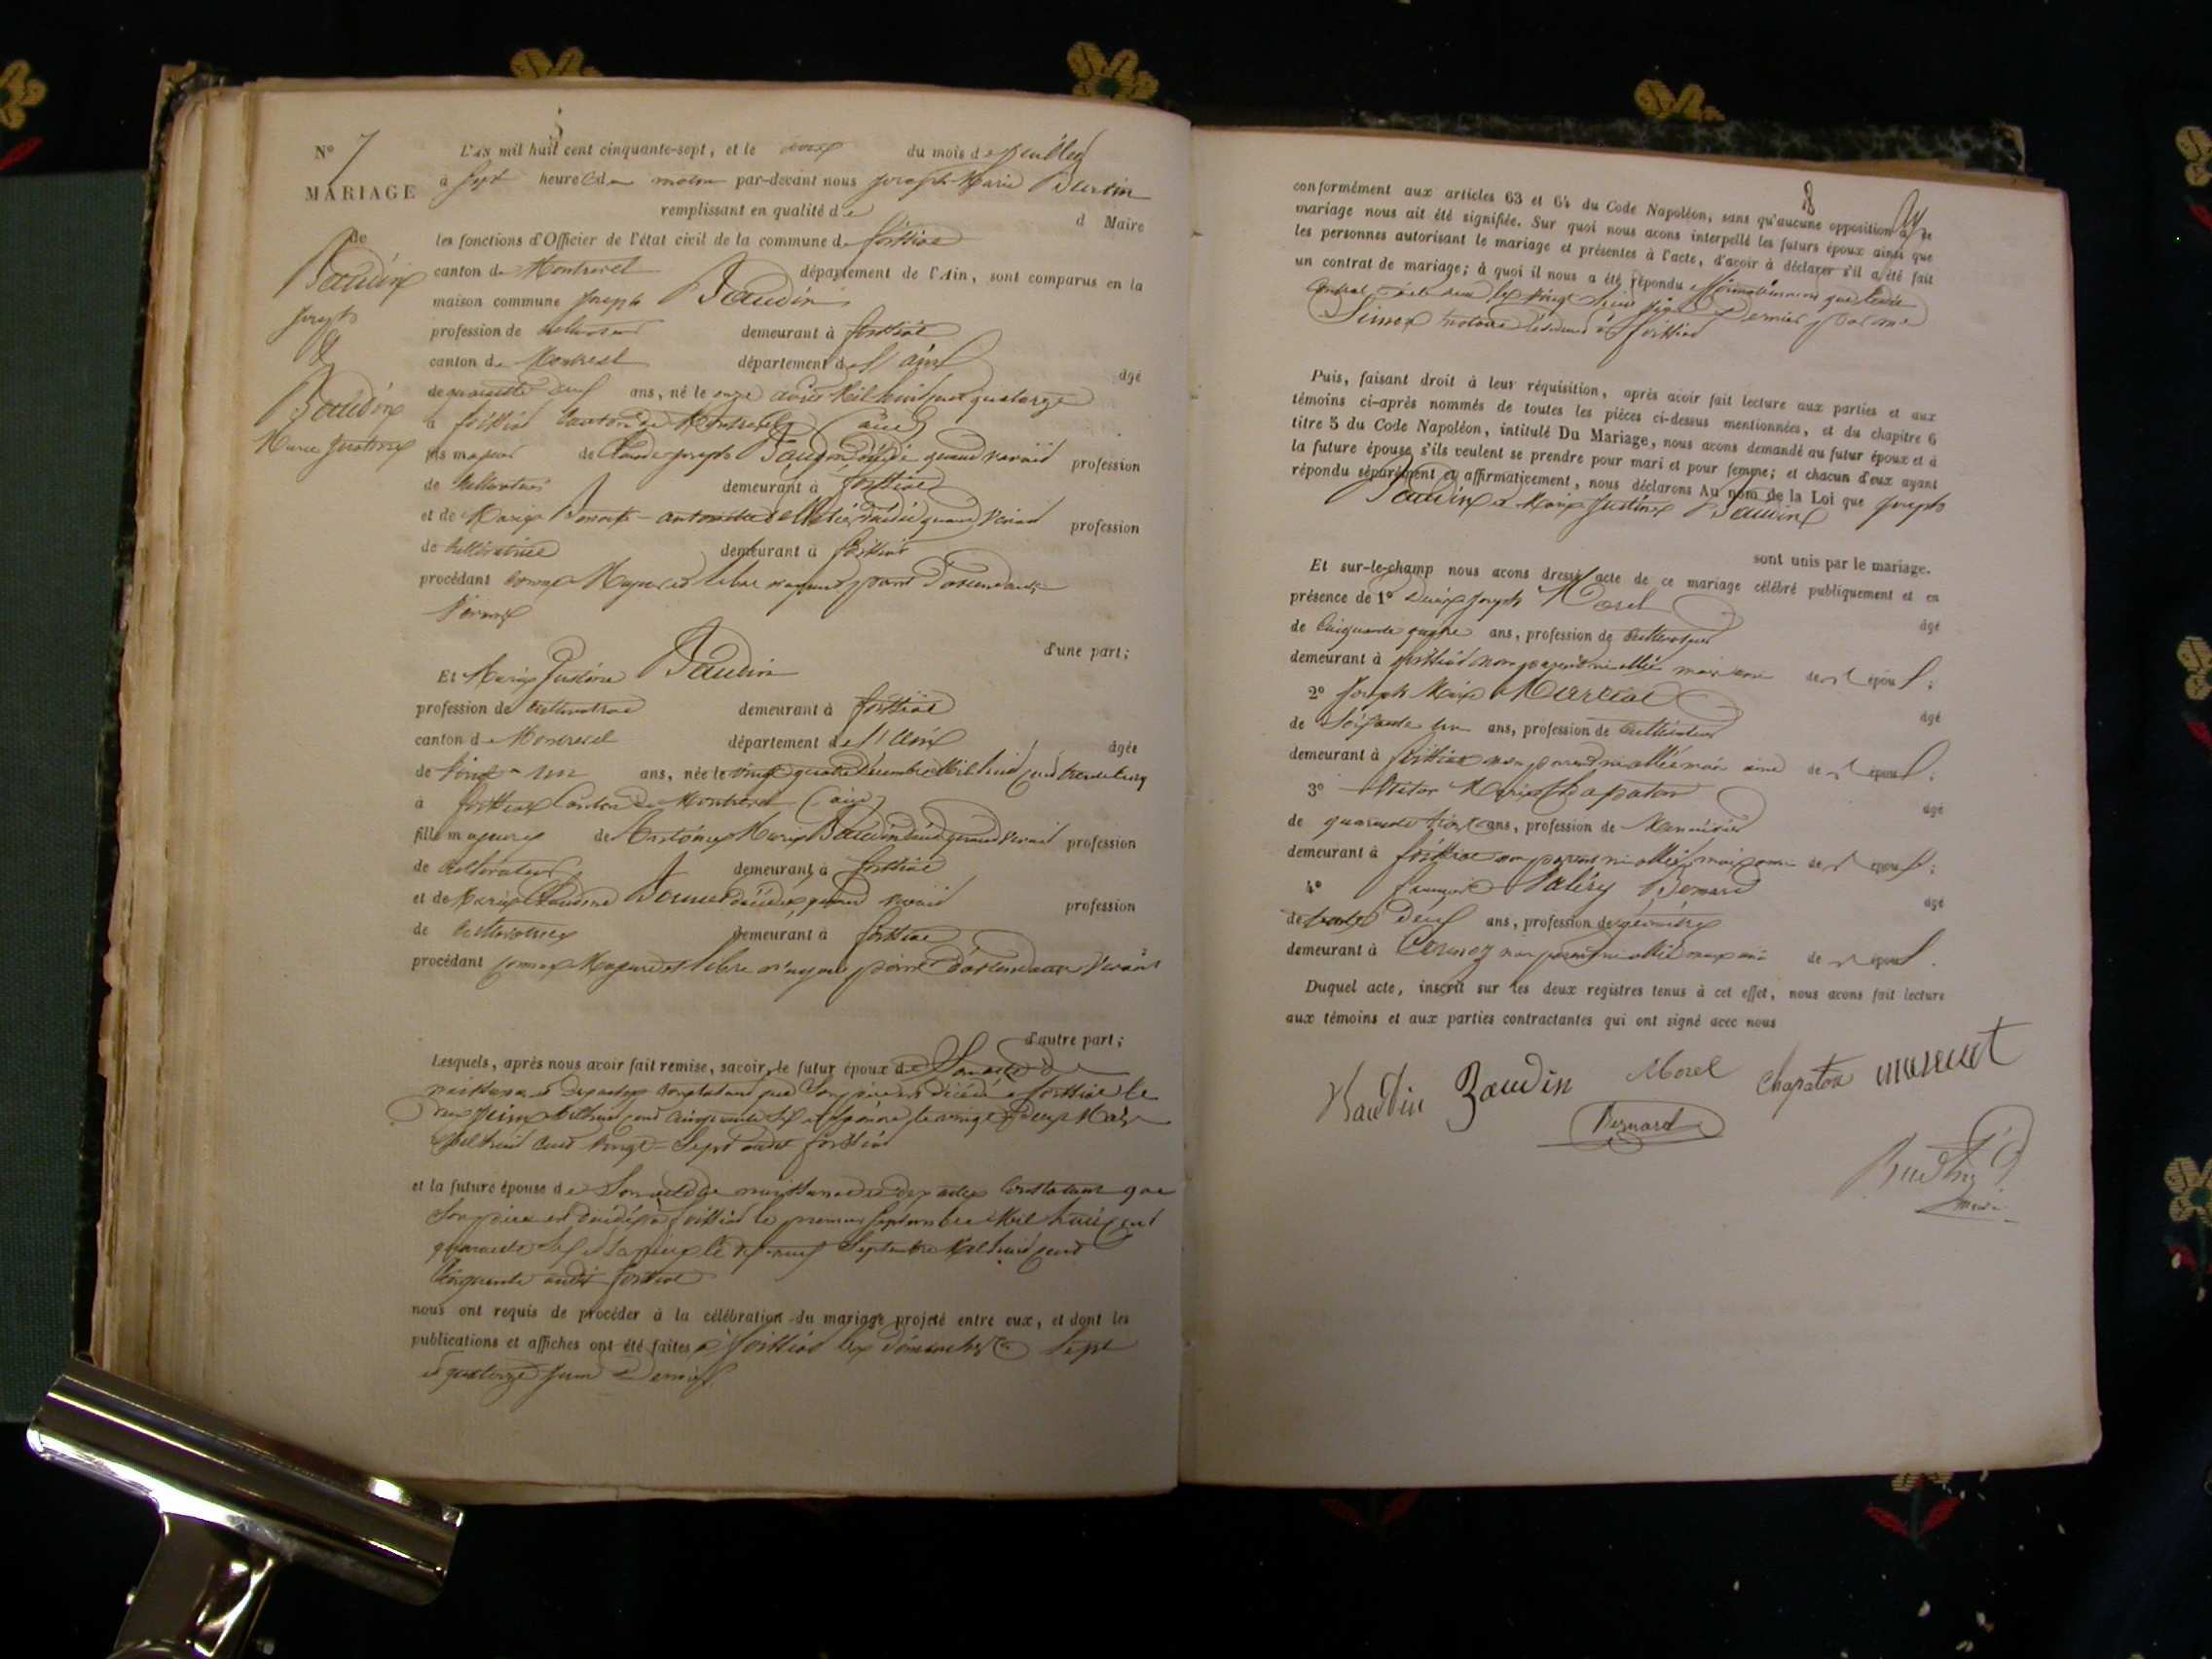 5
N° 7
MARIAGE
de
Baudin
Joseph
&
Baudin
Marie Justine
L'AN mil huit cent cinquante-sept, et le du mois de juillet
à sept heures du matin par-devant nous Joseph-Marie
remplissant en qualité de d Maire
les fonctions d'Officier de l'état civil de la commune de foissiat
canton de Montrevel département de l'Ain, sont comparus en la
maison commune Joseph Baudin
profession de cultivateur demeurant à foissiat
canton de Montrevel département de l'ain âgé
de quarante deux ans, né le onze mil huit cent quatorze
à foissiat canton de Montrevel (ain)
fils majeur de Claude Joseph Baudin décédé quand vivait profession
de cultivateur demeurant à foissiat
et de Marie décédée quand vivait profession
de cultivatrice demeurant à foissiat
procédant comme Majeur et libre n'ayant point d'ascendants
vivants
d'une part;
Et Marie Justine Baudin
profession de cultivatrice demeurant à foissiat
canton de Montrevel département de l'ain âgée
de vingt-un ans, née le vingt quatre décembre mil huit cent trente cinq
à foissiat canton de Montrevel (ain)
fille majeure de Antoine Marie Baudin décédé quand vivait profession
de cultivateur demeurant à foissiat
et de Marie Claudine décédée quand vivait profession
de cultivatrice demeurant à foissiat
procédant comme Majeure et libre n'ayant point d'ascendants vivants
d'autre part;
Lesquels, après nous avoir fait remise, savoir, le futur époux de son acte de
naissance des actes constatant que son père est décédé à foissiat le
juin mil huit cent cinquante six et sa mère le vingt deux Mars
mil huit cent vingt-sept audit foissiat
et la future épouse de son acte de naissance et des actes constatant que
son père est décédé à foissiat le premier septembre mil huit cent
quarante six et sa mère le dix neuf septembre mil huit cent
cinquante audit foissiat
nous ont requis de procéder à la célébration du mariage projeté entre eux, et dont les
publications et affiches ont été faites à foissiat les dimanches sept
et quatorze juin dernier
8
conformément aux articles 63 et 64 du Code Napoléon, sans qu'aucune opposition à ce
mariage nous ait été signifiée. Sur quoi nous avons interpellé les futurs époux ainsi que
les personnes autorisant le mariage et présentes à l'acte, d'avoir à déclarer s'il a été fait
un contrat de mariage; à quoi il nous a été répondu affirmativement que ledit
contrat a été reçu le vingt juin dernier par me
notaire à foissiat
Puis, faisant droit à leur réquisition, après avoir fait lecture aux parties et aux
témoins ci-après nommés de toutes les pièces ci-dessus mentionnées, et du chapitre 6
titre 5 du Code Napoléon, intitulé Du Mariage, nous avons demandé au futur époux et à
la future épouse s'ils veulent se prendre pour mari et pour femme; et chacun d'eux ayant
répondu séparément et affirmativement, nous déclarons AU nom de la Loi que Joseph
Baudin et Marie Justine Baudin
sont unis par le mariage.
Et sur-le-champ nous avons dressé acte de ce mariage célébré publiquement et en
présence de 1° Joseph Morel âgé
de cinquante quatre ans, profession de cultivateur
demeurant à foissiat non parent ni allié mais ami de l'époux;
2° Joseph Marie âgé
de soixante un ans, profession de cultivateur
demeurant à foissiat non parent ni allié mais ami de l'époux;
3° Victor Marie Chapaton âgé
de quarante trois ans, profession de Menuisier
demeurant à foissiat non parent ni allié mais ami de l'époux;
4° françois Valéry Bernard âgé
de trente deux ans, profession de géomètre
demeurant à non parent ni allié mais ami de l'époux.
Duquel acte, inscrit sur les deux registres tenus à cet effet, nous avons fait lecture
aux témoins et aux parties contractantes qui ont signé avec nous
Baudin Baudin Morel Chapaton
Bernard
maire